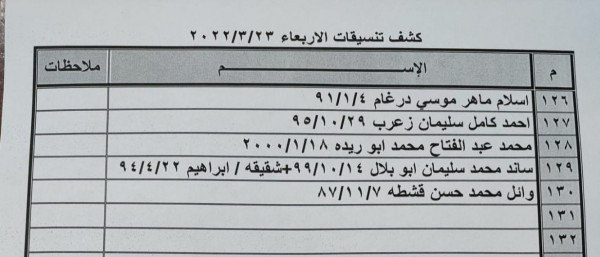 كشف تنسيقات الاربعاء ٢٠٢٢/٣/٢٣
م الإســـــــــم ملاحظات
١٢٦ اسلام ماهر موسي درغام ٩١/١/٤
١٢٧ احمد كامل سليمان زعرب ٩٥/١٠/٢٩
١٢٨ محمد عبد الفتاح محمد ابو ريده ٢٠٠٠/١/١٨
١٢٩ ساند محمد سليمان ابو بلال ٩٩/١٠/١٤+شقيقه / ابراهيم ٩٤/٤/٢٢
١٣٠ وائل محمد حسن قشطه ٨٧/١١/٧
١٣١
١٣٢